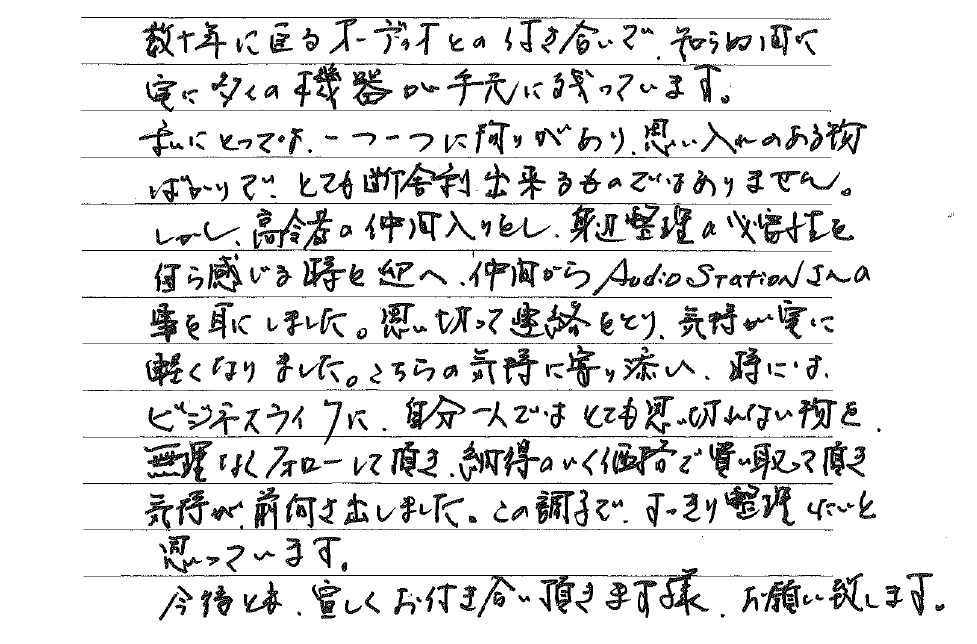 数十年に亘るオーディオとの付き合いで、知らぬ間に
実に多くの機器が手元に残っています。
私にとっては、一つ一つに拘りがあり、思い入れのある物
ばかりで、とても断舎利出来るものではありません。
しかし、高令者の仲間入りをし、身辺整理の必要性を
自ら感じる時を迎へ、仲間からAudio Stationさんの
事を耳にしました。思い切って連絡をとり、気持が実に
軽くなりました。こちらの気持に寄り添い、時には
ビジネスライクに、自分一人ではとても思い切れない物を、
無理なくフォローして頂き、納得のいく価格で買い取って頂き
気持が、前向き出しました。この調子で、すっきり整理したいと
思っています。
今後とも、宜しくお付き合い頂きます様、お願い致します。